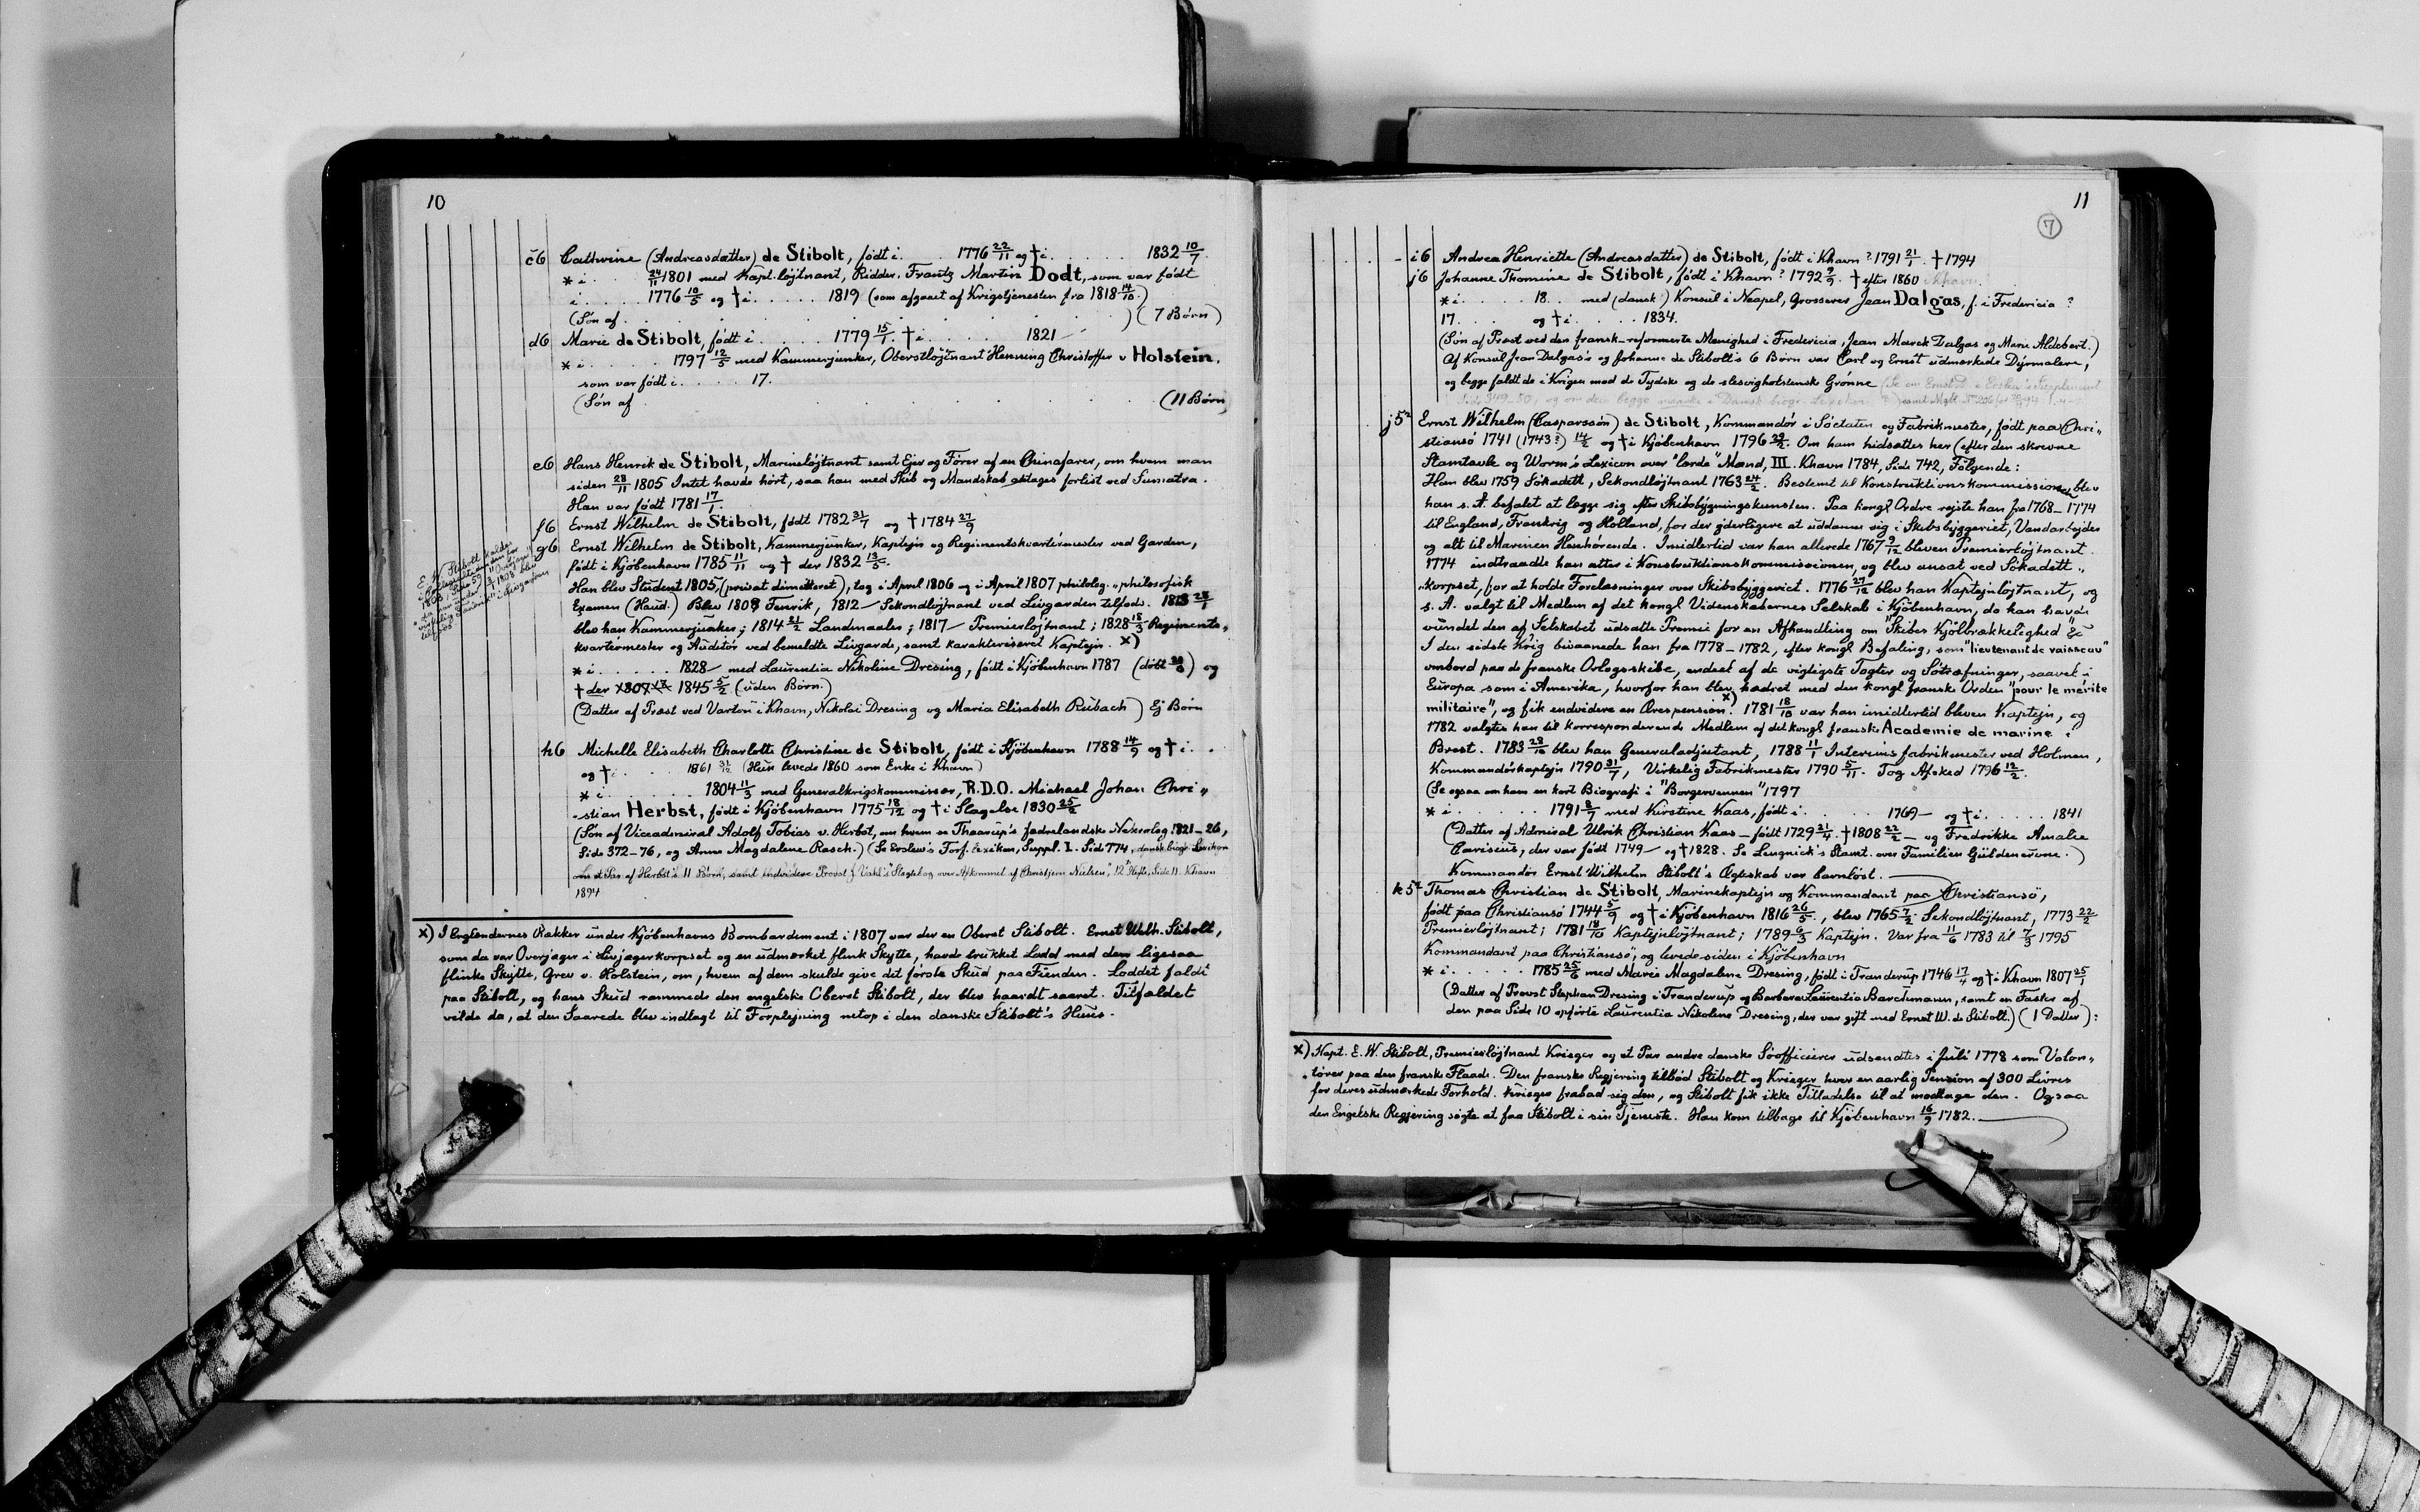 10
c6 Cathrine (Andreasdatter) de Stibolt, født i . . 1776 22/11 og † i . . . . 1832 10/7.
* i . . 24/11 1801 med Kapt. løjtnant, Ridder, Frantz Martin Dodt, som var født
i . . . . 1776 10/5 og † i . . . . . 1819 (som afgaaet af Krigstjenesten fra 1818 14/10.)
(Søn af . . . . . . . . ) (7 Børn)
d6 Marie de Stibolt, født i . . . . . 1779 15/. † i . . . . . 1821
* i . . . . . 1797 12/5 med Kammerjunker, Oberstløjtnant Henning Christoffer v Holstein,
som var født i . . . . 17.
(Søn af . . . . . . . . (11 Børn)
e6 Hans Henrik de Stibolt, Marineløjtnant samt Ejer og Fører af en Chinafarer, om hvem man
siden 28/11 1805 Intet havde hørt, saa han med Skib og Mandskab antages forlist ved Sumatra.
Han var født 1781 17/1.
f6 Ernst Wilhelm de Stibolt, født 1782 31/7 og † 1784 27/9
g6 Ernst Wilhelm de Stibolt, Kammerjunker, Kaptejn og Regimentskvartérmester ved Garden,
født i Kjöbenhavn 1785 11/11 og † der 1832 13/5.
Han blev Student 1805, (privat dimitteret), tog i April 1806 og i April 1807 philolog.„philosofisk
Examen (Haud.) Blev 1809 Fenrik, 1812 Sekondløjtnant ved Livgarden tilfods. 1813 28/1
blev han Kammerjunker; 1814 21/2 Landmaaler; 1817 Premierløjtnant; 1828 18/3 Regiments„
kvartermester og Auditør ved bemeldte Livgarde, samt karakteriseret Kaptejn. x)
* i . . . . . 1828 med Laurentia Nikoline Dresing, født i Kjöbenhavn 1787 (døbt ) og
† der 1845 5/2. (uden Børn.)
(Datter af Præst ved Vartou i Khavn, Nikolai Dresing og Maria Elisabeth Rubach) Ej Børn
h6 Michelle Elisabeth Charlotte Christine de Stibolt, født i Kjöbenhavn 1788 14/9 og † i . .
og † i . . . . 1861 31/12 (Hun levede 1860 som Enke i Khavn)
* i . . . . . 1804 11/3 med Generalkrigskommissær, R.D.O. Michael Johan Chri„
„stian Herbst, født i Kjöbenhavn 1775 18/12 og † i Slagelse 1830 25/2
(Søn af Viceadmiral Adolf Tobias v. Herbst, om hvem se Thaarup's fædrelandske Nekrolog 1821–26,
Side 372–76, og Anne Magdalene Rasch.) (Se Erslew's Forf. Lexikon, Suppl. I. Side 774, dansk biogr. Lexikon
om et Par af Herbst's 11 Børn, samt endvidere Provst J Vahl's "Slægtebog over Afkommet af Christjern Nielsen," 12te Hefte, Side 11. Khavn
1894
x) I Englændernes Rækker under Kjöbenhavns Bombardement i 1807 var der en Oberst Stibolt. Ernst Wilh. Stibolt,
som da var Overjæger i Livjægerkorpset og en udmærket flink Skytte, havde trukket Lodd med den ligesaa
flinke Skytte, Grev v. Holstein, om, hvem af dem skulde give det første Skud paa Fienden. Loddet faldt
paa Stibolt, og hans Skud rammede den engelske Oberst Stibolt, der blev haardt saaret. Tilfældet
vilde da, at den Saarede blev indlagt til Forplejning netop i den danske Stibolt's Huus.
11
7
i6 Andrea Henriette (Andreasdatter) de Stibolt, født i Khavn ? 1791 21/1. † 1794
j6 Johanne Thomine de Stibolt, født i Khavn ? 1792 9/9. † efter 1860
* i . . . . . 18. . med (dansk?) Konsul i Neapel, Grosserer Jean Dalgas, f. i Fredericia ?
17. . . . og † i . . . . 1834.
(Søn af Præst ved den fransk-reformerte Menighed i Fredericia, Jean Marck Dalgas og Marie Aldebert.)
Af Konsul Jean Dalgas's og Johanne de Stibolt's 6 Børn var Carl og Ernst udmærkede Dyrmalere,
og begge faldt de i Krigen mod de Tydske og de slesvigholstenske Grønne
j5² Ernst Wilhelm (Casparssøn) de Stibolt, Kommandör i Söetaten og Fabrikmester, født paa Chri„
stiansö 1741 (1743?) 14/2 og † i Kjöbenhavn 1796 29/2. Om ham hidsættes her (efter den skrevne
Stamtavle og Worm's Lexicon over "lærde" Mænd, III. Khavn 1784, Side 742, Fölgende:
Han blev 1759 Søkadett, Sekondløjtnant 1763 24/2. Bestemt til Konstruktionskommissionen blev
han s. A. befalet at lægge sig efter Skibsbygningskunsten. Paa kongl Ordre rejste han fra 1768–1774
til England, Frankrig og Holland, for der yderligere at uddanne sig i Skibsbyggeriet, Vandarbejder
og alt til Marinen Henhørende. Imidlertid var han allerede 1767 9/12 bleven Premierløjtnant.
1774 indtraadte han atter i Konstruktionskommissionen, og blev ansat ved Søkadett„
„korpset, for at holde Forelæsninger over Skibsbyggeriet. 1776 27/12 blev han Kaptejnløjtnant, og
s. A. valgt til Medlem af det kongl Videnskabernes Selskab i Kjöbenhavn, da han havde
vundet den af Selskabet udsatte Præmie for en Afhandling om "Skibes Kjölbrækkelighed" &c
I den sidste Krig bivaanede han fra 1778–1782, efter kongl Befaling, som "lieutenant de vaisseau"
ombord paa de franske Orlogsskibe, endeel af de vigtigste Togter og Søtræfninger, saavel i
Europa som i Amerika, hvorfor han blev hædret med den kongl franske Orden "pour le mérite
militaire", og fik endvidere en Ærespension. x) 1781 18/10 var han imidlertid bleven Kaptejn, og
1782 valgtes han til korresponderende Medlem af det kongl franske Academie de marine i
Brest. 1783 29/10 blev han Generaladjutant, 1788 11/1 Interimsfabrikmester ved Holmen,
Kommandörkaptejn 1790 31/7, Virkelig Fabrikmester 1790 5/11. Tog Afsked 1796 12/2.
(Se ogsaa om ham en kort Biografi i "Borgervennen" 1797
* i . . . . . 1791 8/7 med Kirstine Kaas, født i . . . . . 1769 og † i . . . . . 1841
(Datter af Admiral Ulrik Christian Kaas – født 1729 21/4. † 1808 22/2 – og Fredrikke Amalie
Cariscius, der var født 1749 og † 1828. Se Lengnick's Stamt. over Familien Güldencrone.)
Kommandör Ernst Wilhelm Stibolt's Ægteskab var barnløst.
k5² Thomas Christian de Stibolt, Marinekaptejn og Kommandant paa Christiansö,
født paa Christiansö 1744 5/9 og † i Kjöbenhavn 1816 26/5., blev 1765 7/2. Sekondløjtnant, 1773 22/2
Premierløjtnant; 1781 18/10 Kaptejnløjtnant; 1789 6/3 Kaptejn. Var fra 11/6 1783 til 7/3 1795
Kommandant paa Christiansö, og levede siden i Kjöbenhavn
* i . . . . . 1785 25/6 med Marie Magdalene Dresing, født i Tranderup 1746 17/4 og † i Khavn 1807 25/1
(Datter af Provst Stephan Dresing i Tranderup og Barbara Laurentia Barchmann, samt en Faster af
den paa Side 10 opførte Laurentia Nikoline Dresing, der var gift med Ernst W. de Stibolt.) (1 Datter):
x) Kapt. E. W. Stibolt, Premierløjtnant Krieger og et Par andre danske Söofficierer udsendtes i Juli 1778 som Volon„
„törer paa den franske Flaade. Den franske Regjering tilbød Stibolt og Krieger hver en aarlig Pension af 300 Livres
for deres udmærkede Forhold. Krieger frabad sig den, og Stibolt fik ikke Tilladelse til at modtage den. Ogsaa
den Engelske Regjering søgte at faa Stibolt i sin Tjeneste. Han kom tilbage til Kjöbenhavn 16/9 1782.